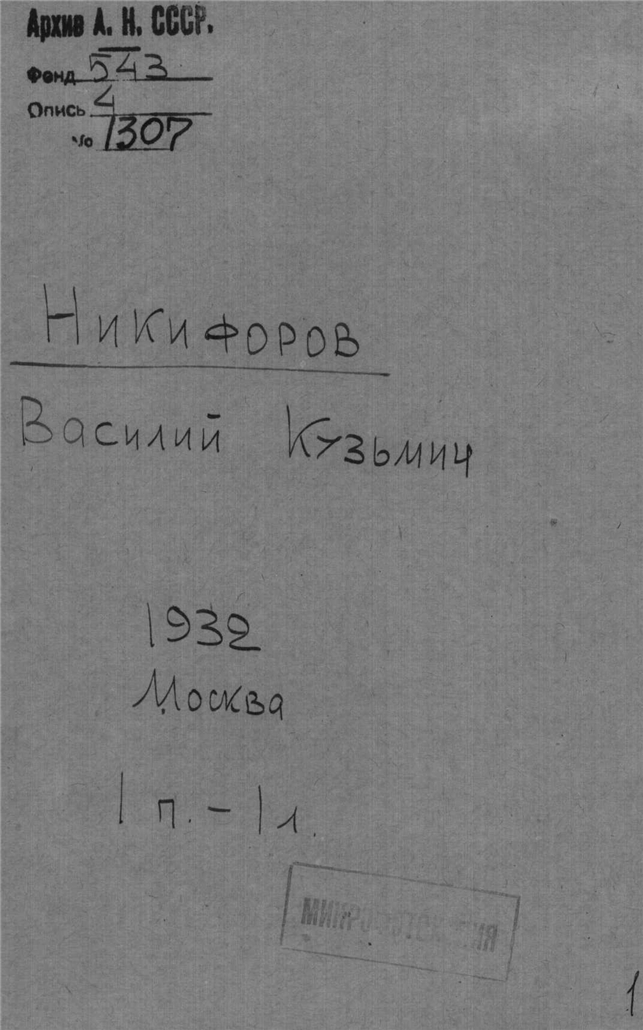 Архив А. Н. СССР.
Фонд 543
Опись 4
№ 1307
Никифоров
Василий Кузьмич
1932
Москва
1 п. – 1 л.
МИКРОФОТОКОПИЯ
1